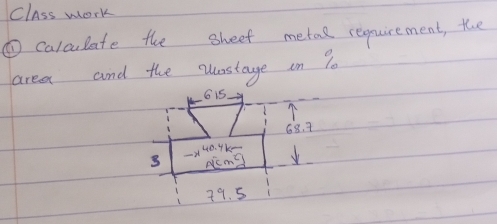 Class work
① Calculate the sheet metal requirement, the
area and the Wastage in %
615
68.7
40.4k
3
79.5